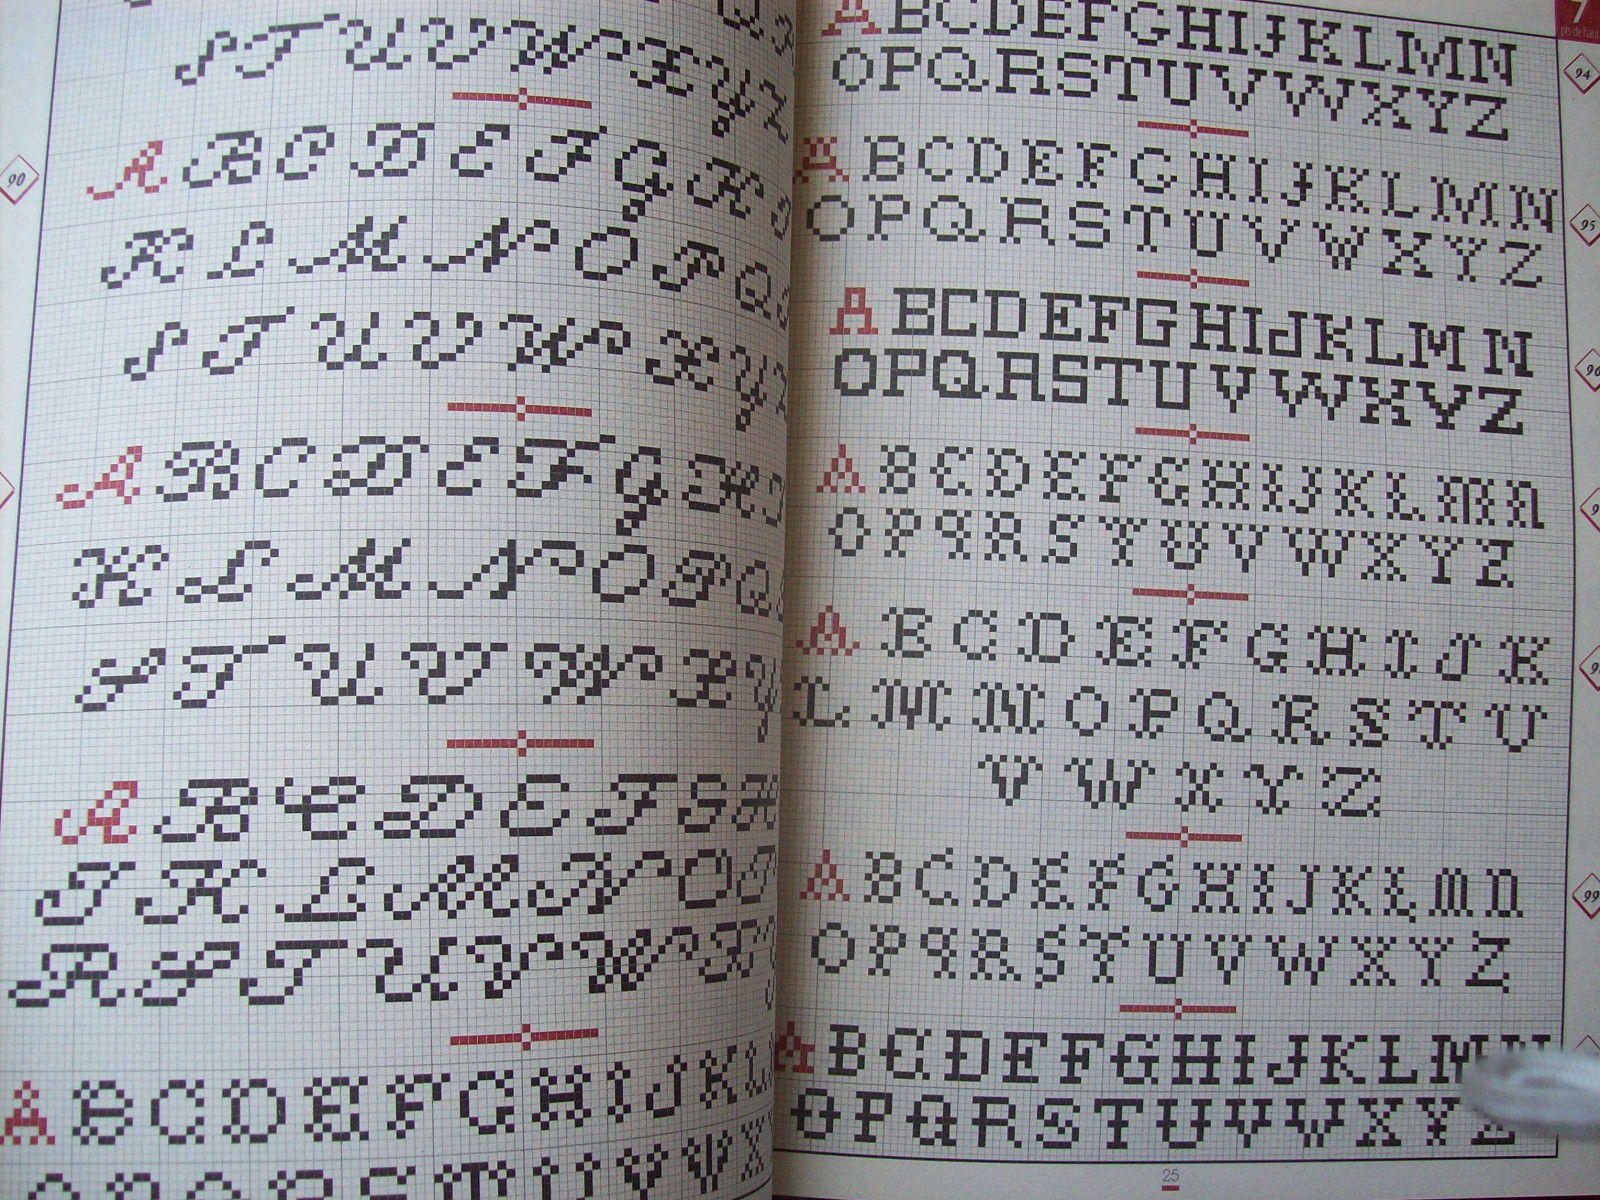 S T U V W X Y Z
90
A B C D E F G H
K L M N O P Q
S T U V W X Y Z
A B C D E F G H I
K L M N O P Q
S T U V W X Y
A B C D E F G H
J K L M N O P
R S T U V W X
A B C D E F G H I J K L
7
pts de haut
A B C D E F G H I J K L M N
94
O P Q R S T U V W X Y Z
A B C D E F G H I J K L M N
95
O P Q R S T U V W X Y Z
A B C D E F G H I J K L M N
96
O P Q R S T U V W X Y Z
A B C D E F G H I J K L M N
O P Q R S T U V W X Y Z
A B C D E F G H I J K
L M N O P Q R S T U
V W X Y Z
A B C D E F G H I J K L M N
99
O P Q R S T U V W X Y Z
A B C D E F G H I J K L M N
O P Q R S T U V W X Y Z
25